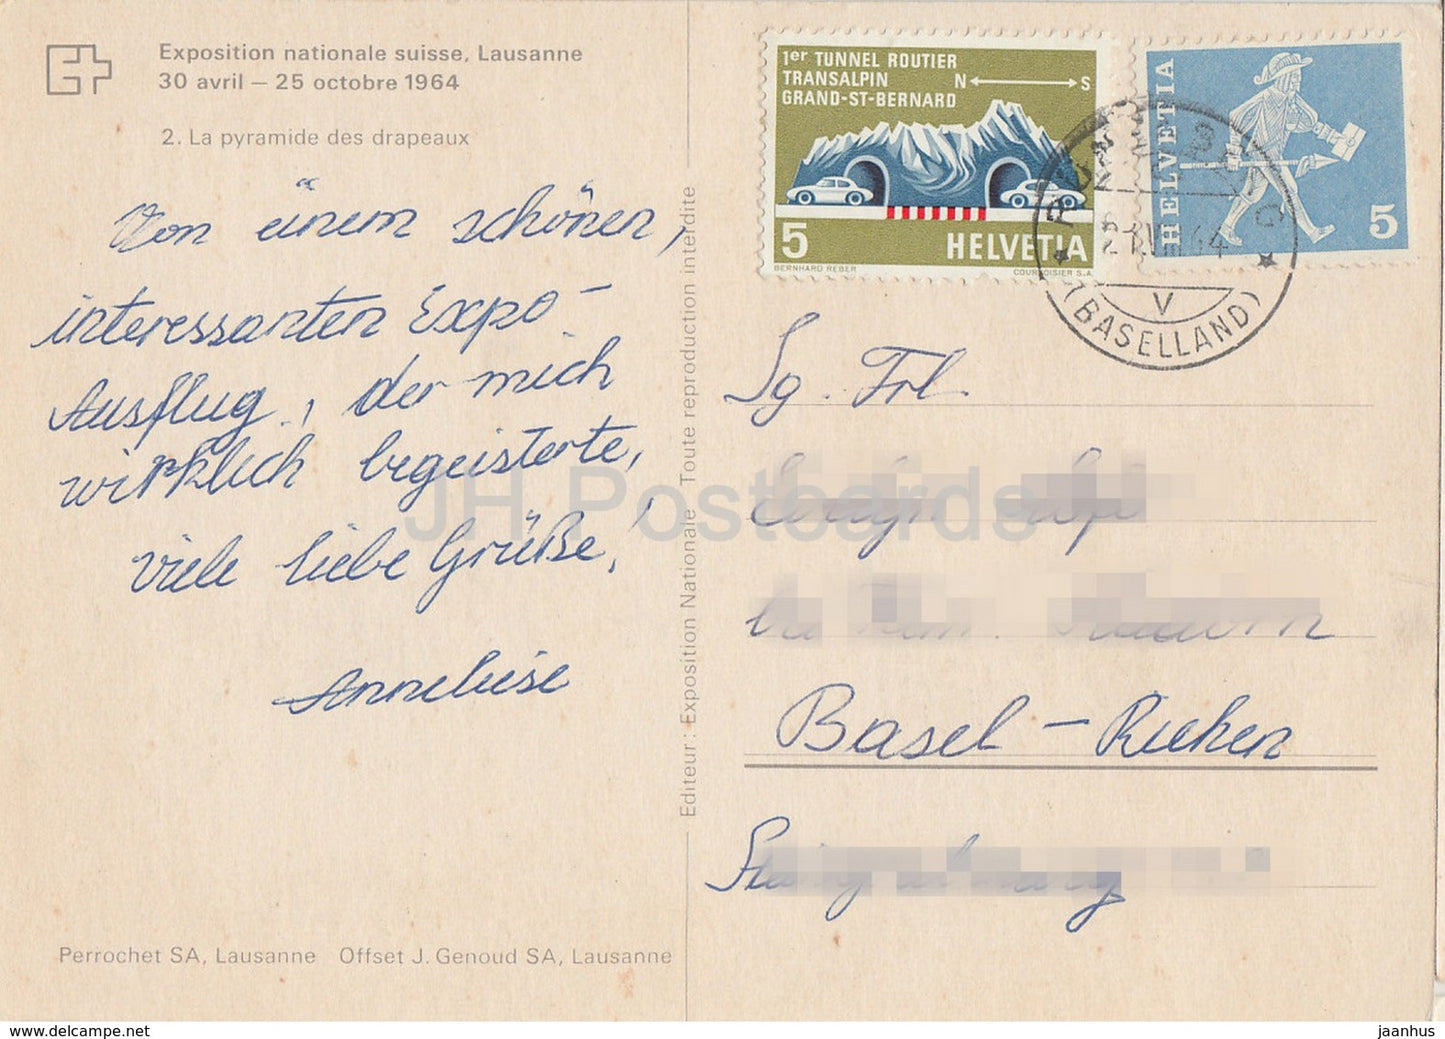 Exposition nationale suisse, Lausanne
30 avril – 25 octobre 1964
2. La pyramide des drapeaux
Von einem schönen,
interessanten Expo-
Ausflug, der mich
wirklich begeisterte,
viele liebe Grüße!
Anneliese
Perrochet SA, Lausanne Offset J. Genoud SA, Lausanne
Editeur : Exposition Nationale Toute reproduction interdite
1er TUNNEL ROUTIER
TRANSALPIN N S
GRAND-ST-BERNARD
5 HELVETIA
BERNHARD REBER COURVOISIER S.A.
HELVETIA
5
V
(BASELLAND)
Sg. Frl.
Basel – Riehen
JH Postcards
jaanhus © delcampe.net